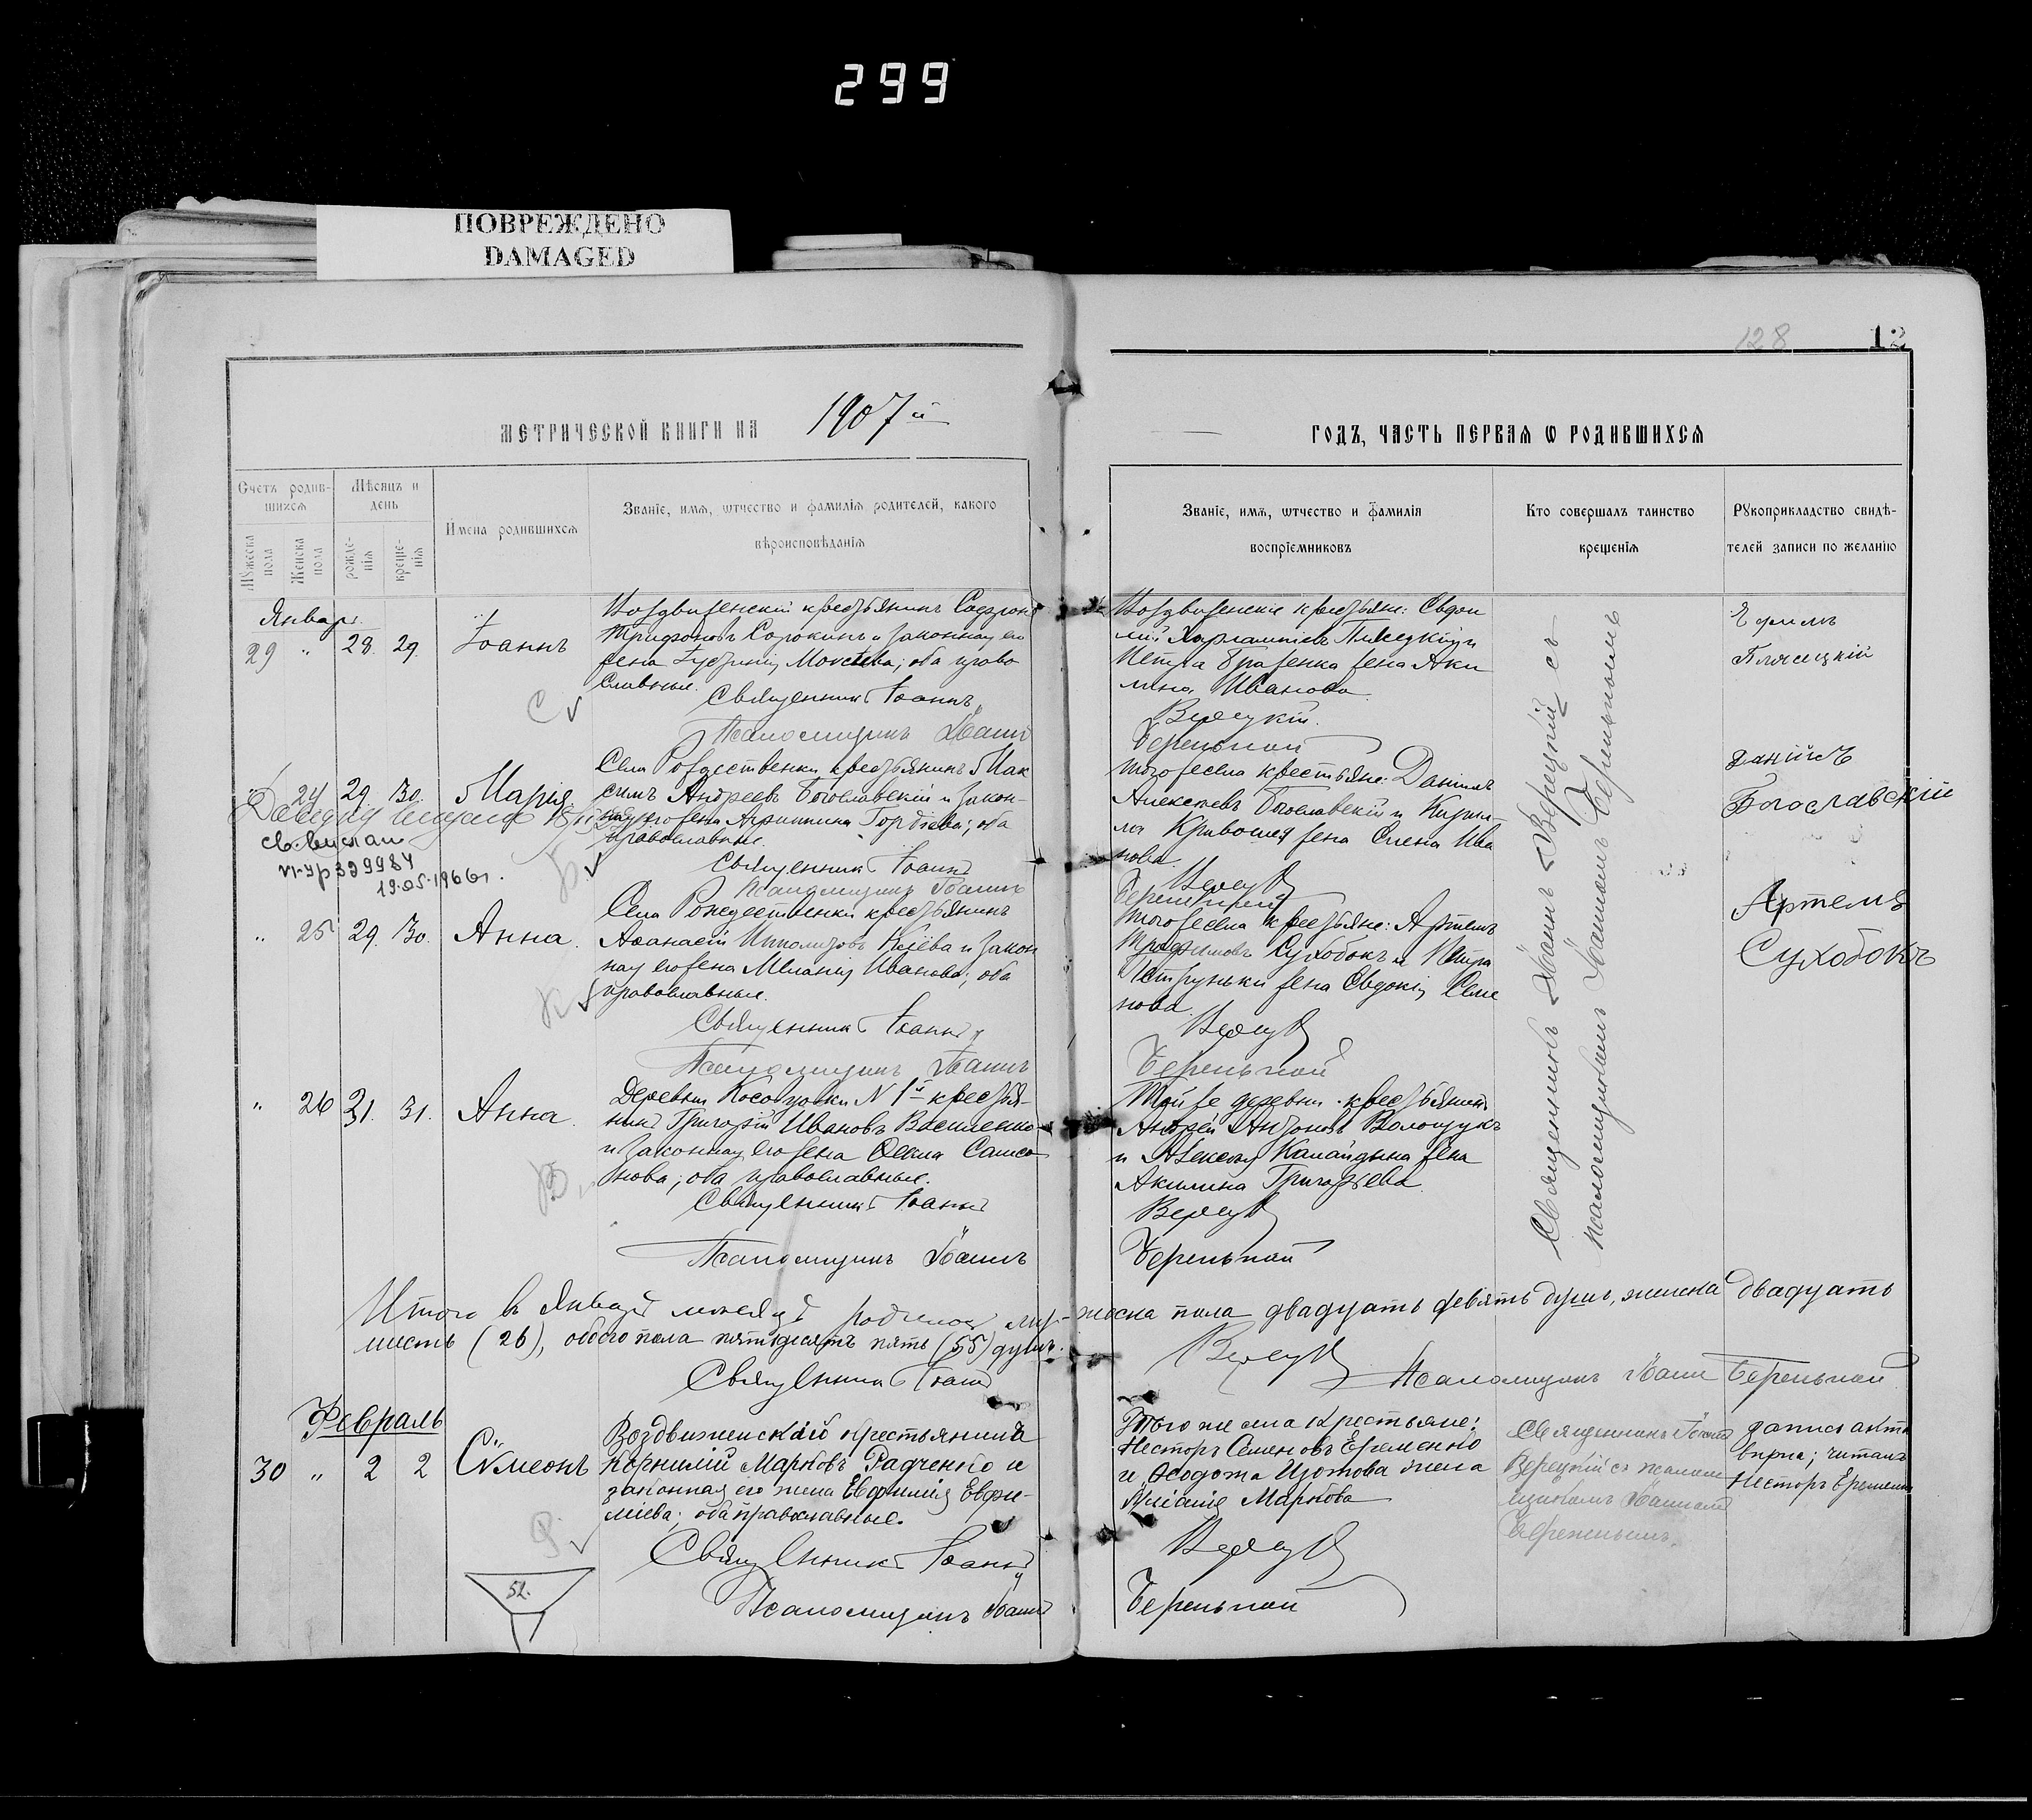 299
ПОВРЕЖДЕНО
DAMAGED
128
12
МЕТРИЧЕСКОЙ КНИГИ НА 1907й
ГОДЪ, ЧАСТЬ ПЕРВАѦ Ѡ РОДИВШИХСѦ
Счетъ родив-
шихсѧ
Мꙋжеска пола
Женска пола
Мѣсяцъ и
день
рожде-
нїѧ
креще-
нїѧ
Имена родившихсѧ
Званїе, имѧ, ѡтчество и фамилїѧ родителей, какого
вѣроисповѣданїѧ
Званїе, имѧ, ѡтчество и фамилїѧ
воспрїемниковъ
Кто совершалъ таинство
крещенїѧ
Рꙋкоприкладство свидѣ-
телей записи по желанїю
Январь
29 " 28. 29. Іоаннъ
Воздвиженскій крестьянинъ Софрон
Трифоновъ Сорокинъ и законная его
жена Моисеева; оба право
славные.
Священникъ Іоаннъ
Псаломщикъ Іоаннъ
Воздвиженскіе крестьяне: Евфи
мій Харлампіевъ и
Петра жена Аки
лина Иванова
Верецкій.
Береньной
Ефимъ
" 24 29. 30. Марія.
Села Рождественки крестьянинъ Мак
симъ Андреевъ Богославскій и закон-
ная его жена Агриппина Гордіева; оба
православные.
Священникъ Іоаннъ
Псаломщикъ Іоаннъ
св.
19.05.1966г.
того же села крестьяне: Даніилъ
Алексеевъ Богославскій и Кирил-
ла Кривошея жена Елена Ива
нова.
Береньной
Даніилъ
Богославскій
" 25 29. 30. Анна.
Села Рождественки крестьянинъ
Аѳанасій Ипполитовъ и закон
ная его жена Меланія Иванова; оба
православные.
Священникъ Іоаннъ
Псаломщикъ Іоаннъ
того же села крестьяне: Артемъ
Трофимовъ Сухобокъ и Петра
Петруньки жена Евдокія Семе
нова.
Береньной
Артемъ
Сухобокъ
" 26 31. 31. Анна.
Деревни Косовцовки № 1й крестья-
нинъ Григорій Ивановъ Василенко
и законная его жена Ѳекла Самсо
нова; оба православные.
Священникъ Іоаннъ
Псаломщикъ Іоаннъ
Той же деревни крестьянинъ
Андрей Антоновъ Волощукъ
и Алексея жена
Акилина Григорьева.
Береньной
Священникъ Іоаннъ Верецкій съ
псаломщикомъ Іоанномъ Береньнымъ
Итого въ Январѣ месяцѣ родилось муж-
жеска пола двадцать девять душъ, женска двадцать
шесть (26), обоего пола пятьдесятъ пять (55) душъ.
Священникъ Іоаннъ
Псаломщикъ Іоаннъ Береньной
Февраль
30 " 2 2 Сѵмеонъ
Воздвиженскій крестьянинъ
Корнилій Марковъ Радченко и
законная его жена Евфимія Евфи-
міева; оба православные.
Священникъ Іоаннъ
Псаломщикъ Іоаннъ
52.
Того же села крестьяне:
Несторъ Семеновъ Еременко
и Ѳеодота Изотова жена
Маркова
Береньной
Священникъ Іоаннъ
Верецкій съ псалом
щикомъ Іоанномъ
Береньнымъ.
запись акта
вѣрна; читалъ
Несторъ Еременко